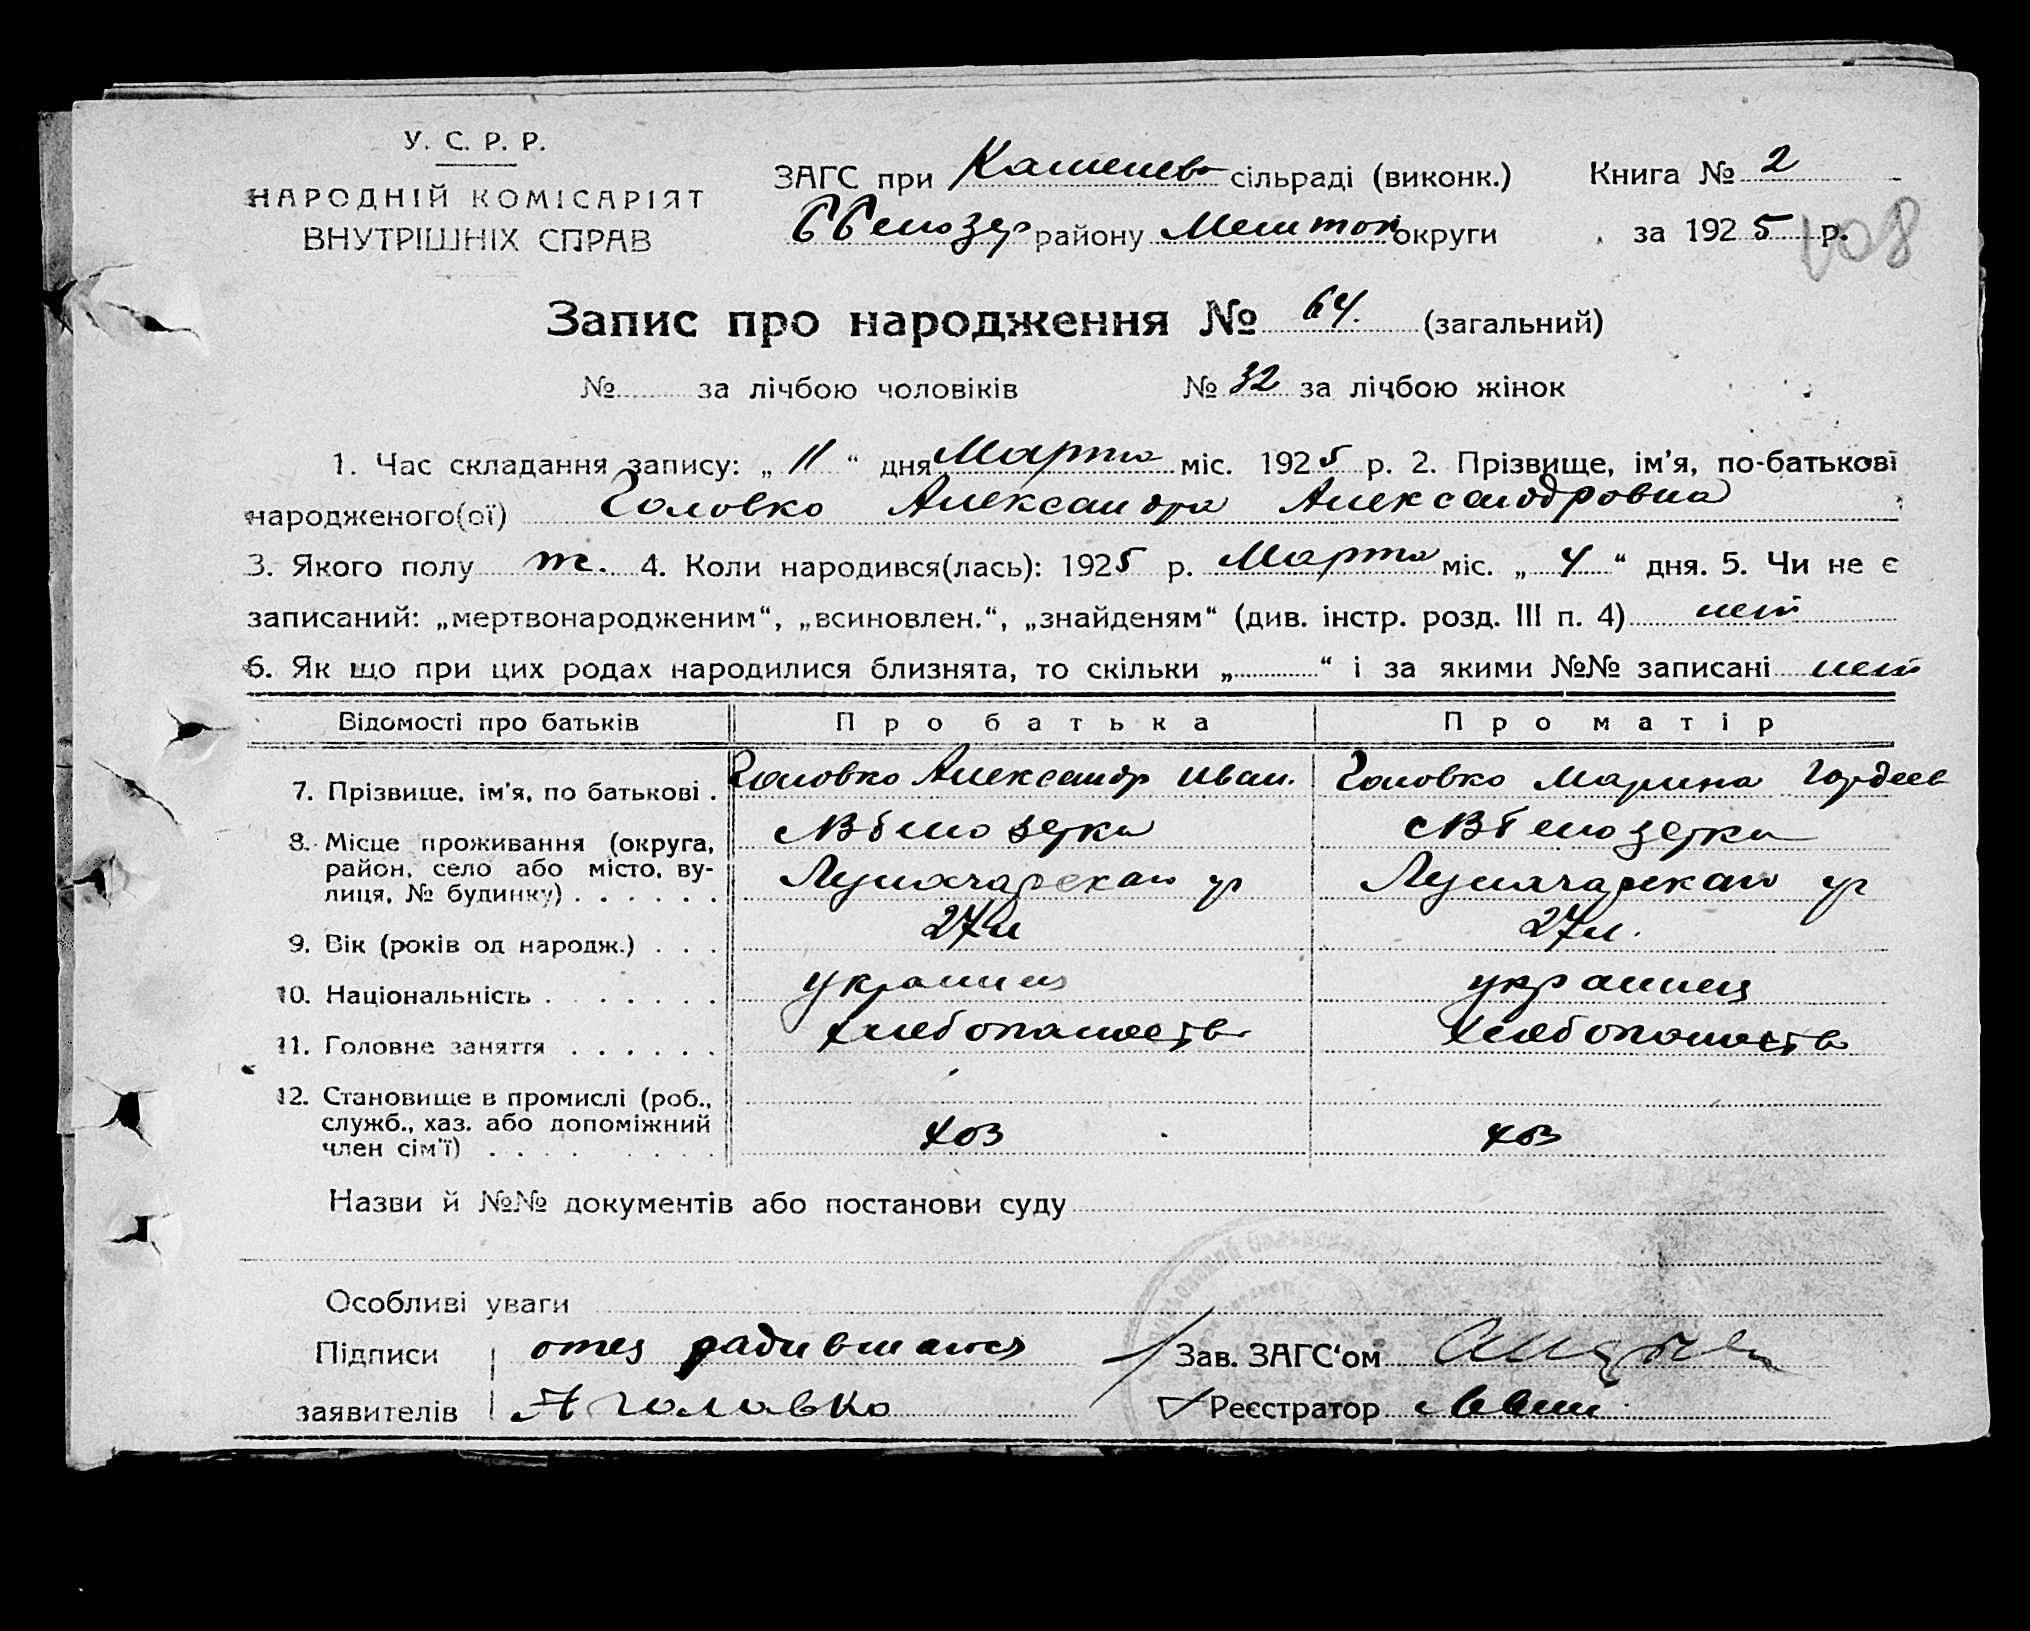 У. С. Р. Р.
НАРОДНІЙ КОМІСАРІЯТ
ВНУТРІШНІХ СПРАВ
ЗАГС при сільраді (виконк.) Книга № 2
ББелозер району Мелитоп округи за 1925 р.
108
Запис про народження № 64. (загальний)
№ за лічбою чоловіків № 32 за лічбою жінок
1. Час складання запису: „ 11 “ дня Марта міс. 1925 р. 2. Прізвище, ім'я, по-батькові
народженого(ої) Головко Александра Александровна
3. Якого полу ж. 4. Коли народився(лась): 1925 р. Марта міс. „ 4 “ дня. 5. Чи не є
записаний: „мертвонародженим“, „всиновлен.“, „знайденям“ (див. інстр. розд. III п. 4) нет
6. Як що при цих родах народилися близнята, то скільки „ “ і за якими №№ записані нет
Відомості про батьків Про батька Про матір
7. Прізвище, ім'я, по батькові . Головко Александр Иван. Головко Марина Гордеев
8. Місце проживання (округа,
район, село або місто, ву-
лиця, № будинку) . . . . . .
Луначарская ул Луначарская ул
9. Вік (років од народж.) . . . 27 л 27 л.
10. Національність . . . . . . . украинец украинец
11. Головне заняття . . . . . . хлебопашеств хлебопашеств
12. Становище в промислі (роб.,
служб., хаз. або допоміжний
член сім'ї) . . . . . . . . хоз хоз
Назви й №№ документів або постанови суду
Особливі уваги
Підписи отец радившаюся Зав. ЗАГС‘ом
заявителів А Головко Реєстратор